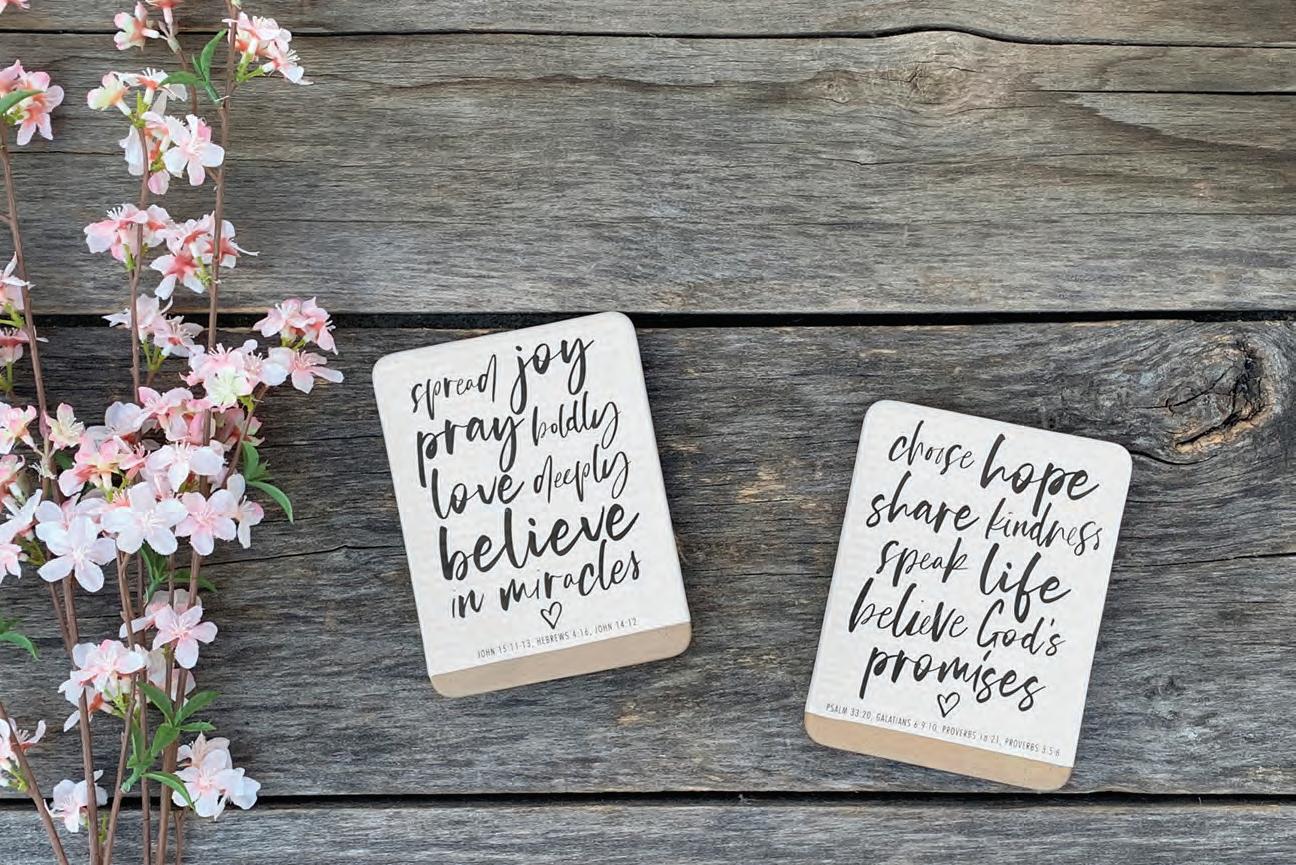 spread joy
pray boldly
love deeply
believe
in miracles
JOHN 15:11-13, HEBREWS 4:16, JOHN 14:12
choose hope
share kindness
speak life
believe God's
promises
PSALM 33:20, GALATIANS 6:9-10, PROVERBS 18:21, PROVERBS 3:5-6